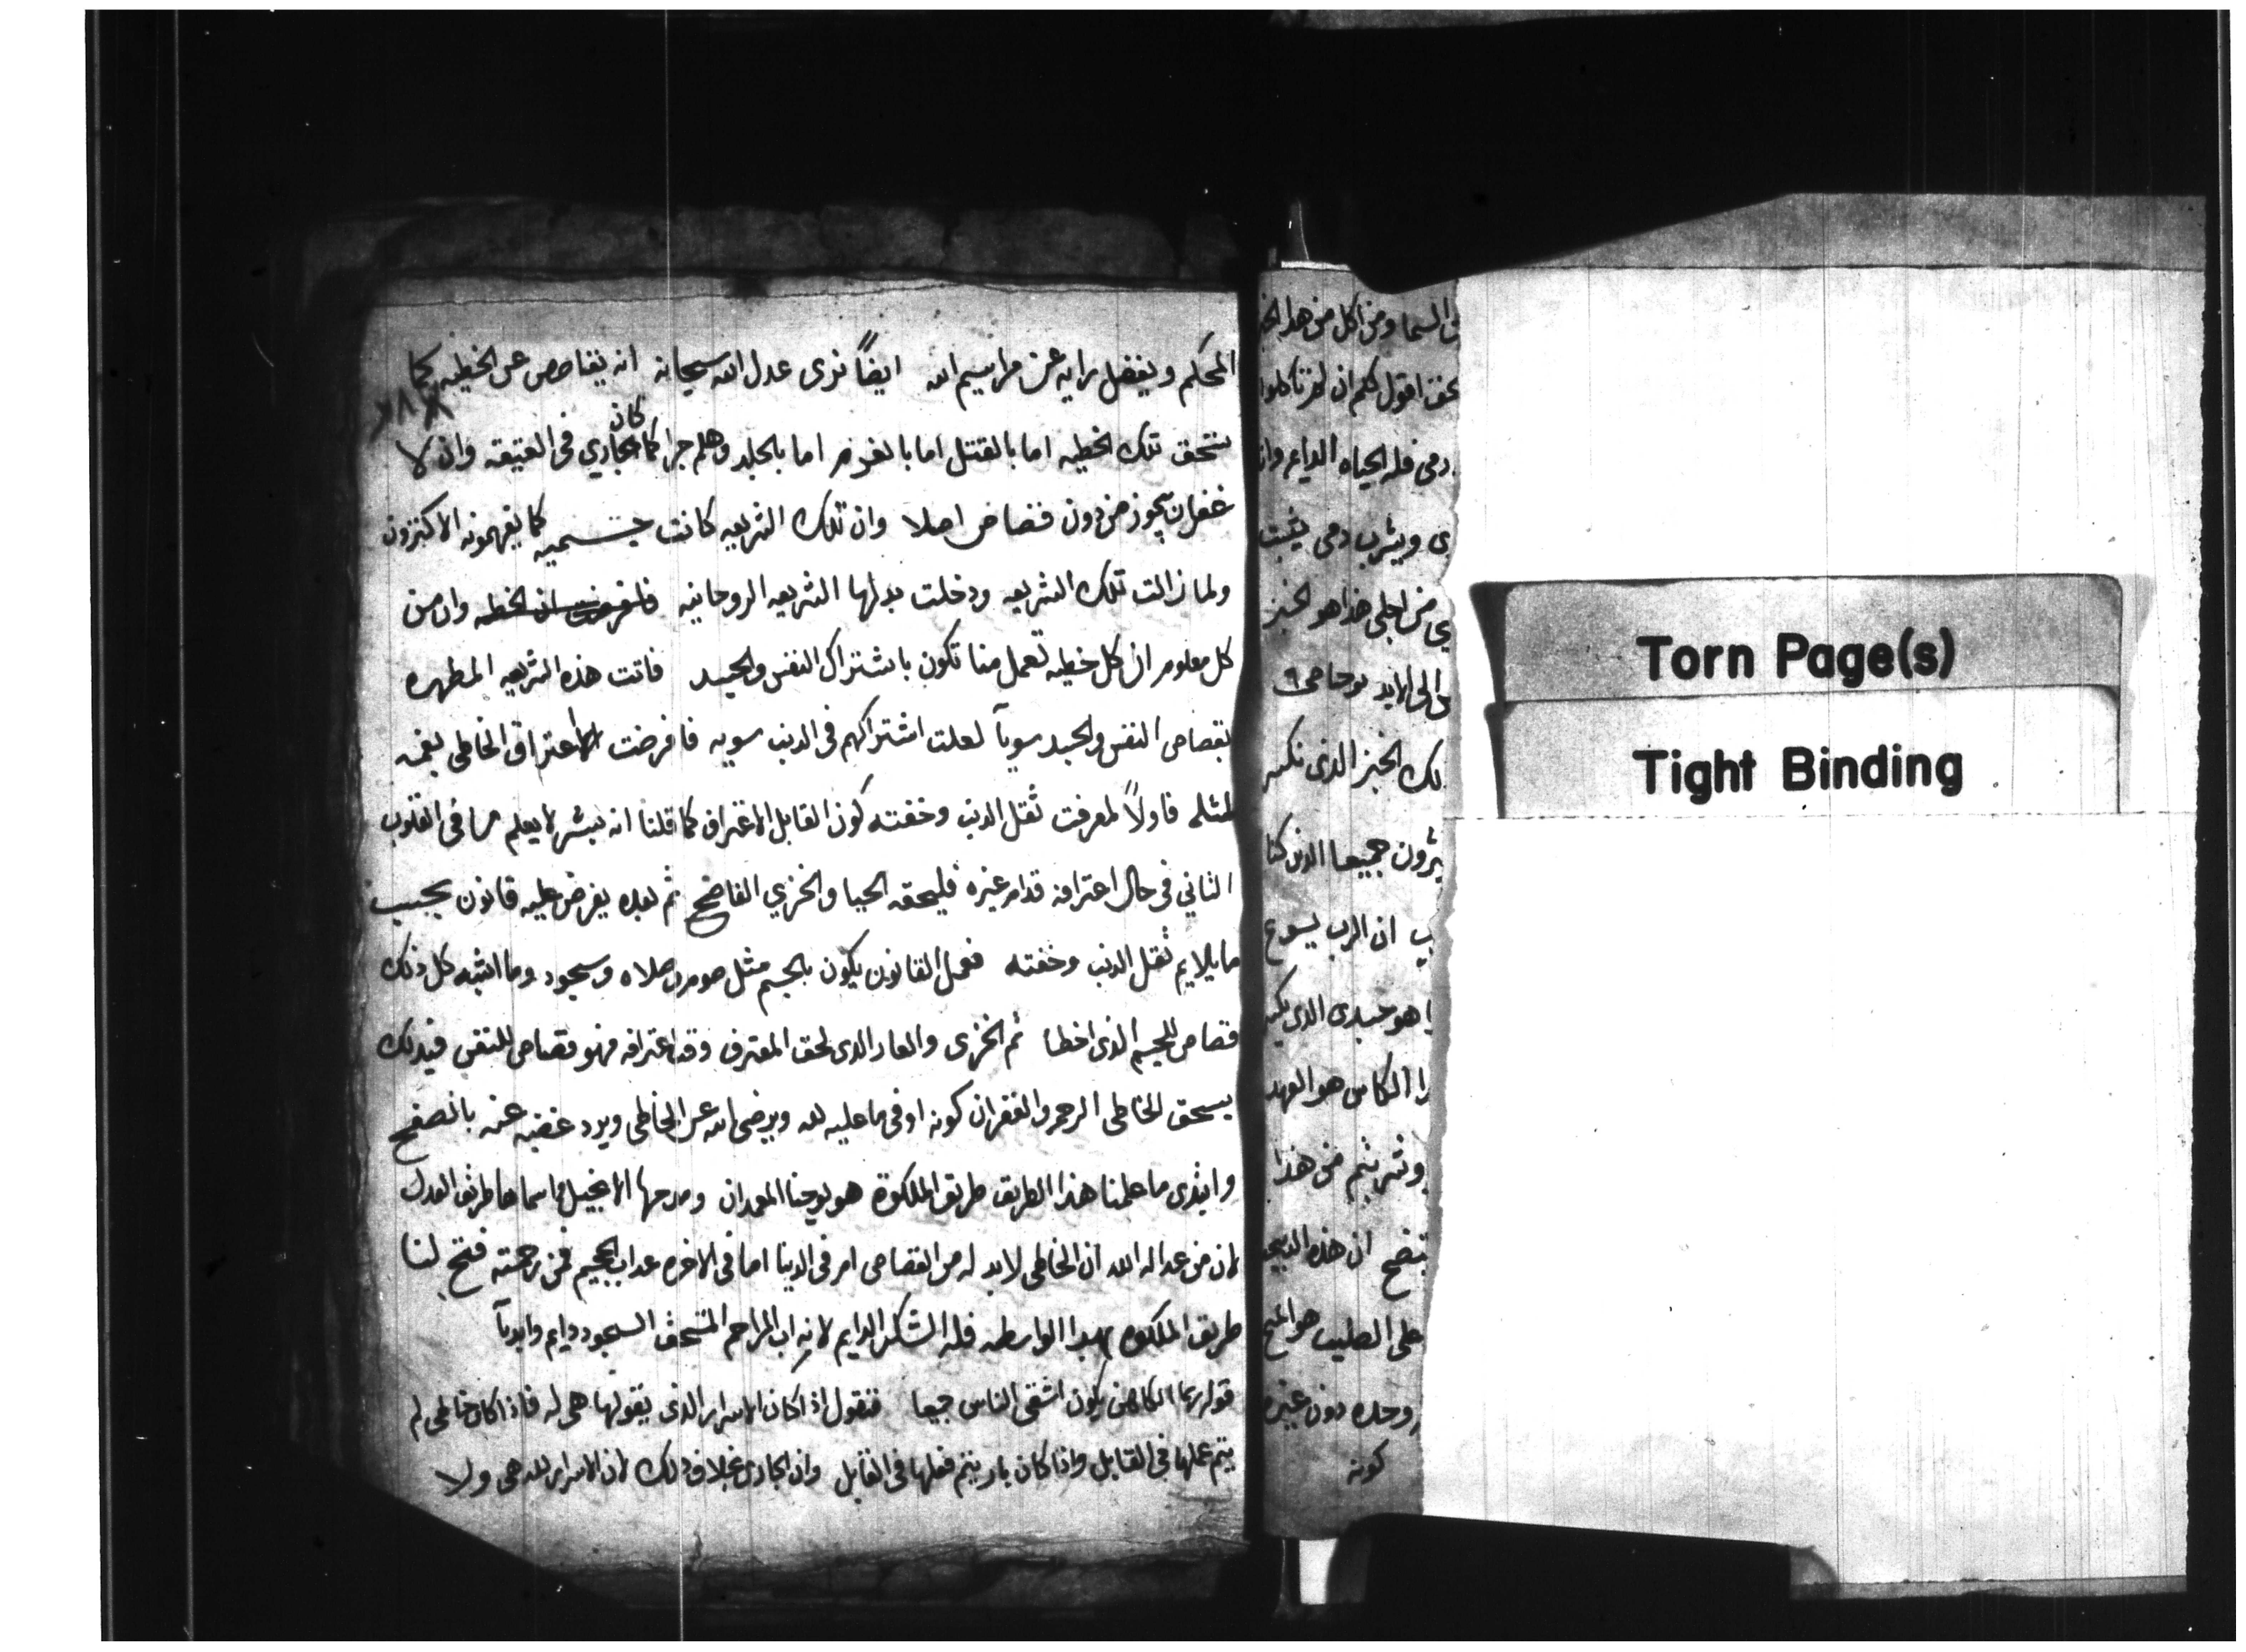 من السما ومن اكل من هذا الخبز
اقول لكم ان لم تاكلوا
دمي فله الحياه الدايم وانا
ويشرب دمي يثبت
من اجلي هذا هو الخبز
الى الابد يوحنا
الخبز الذي نكسر
جميعا الذين كنا
ان الرب يسوع
هو جسدي الذي
الكاس هو العهد
وشربتم من هذا
يتضح ان هذه
على الصليب هو
وحده دون غيره
كونه
المحكم ويفضل رايه عن مراسيم الله ايضاً نرى عدل الله سبحانه انه يقاصص عن الخطيه كما
٢٨٨
تستحق تلك الخطيه اما بالقتل اما بالغرم اما بالجلد وهلم جرا كما كان جاري في العتيقه وان لا
غفران يجوز من دون قصاص اصلا وان تلك الشريعه كانت جسميه كما يفهمونه الاكثرون
ولما زالت تلك الشريعه ودخلت بدلها الشريعه الروحانيه وان من
كل معلوم ان كل خطيه تعمل منا تكون باشتراك النفس والجسد فاتت هذه الشريعه المطهره
بقصاص النفس والجسد سوياً لعلت اشتراكهم في الذنب سويه فافرضت الاعتراف الخاطي بفمه
لمثله فاولاً لمعرفت ثقل الذنب وخفته كون القابل الاعتراف كما قلنا انه بشر لا يعلم ما في القلوب
الثاني في حال اعترافه قدام غيره فليحقه الحيا والخزي الفاضح ثم بعده يفرض عليه قانون بحسب
ما يلايم ثقل الذنب وخفته فعمل القانون يكون بالجسم مثل صوم صلاه وسجود وما اشبه كل ذلك
قصاص للجسم الذي اخطا ثم الخزي والعار الذي لحق المعترف وقت اعترافه فهو قصاص للنفس فبذلك
يستحق الخاطي الرحمه والغفران كونه اوفى ما عليه لله ويرضى الله عن الخاطي ويرد غضبه عنه بالصفح
وابتدى ما علمنا هذا الطريق طريق الملكوة هو يوحنا المعمدان ومدحها الانجيل واسماها طريق العدل
لان من عدالة الله ان الخاطي لابد له من القصاص ام في الدنيا اما في الاخره عداب الجحيم فمن رحمته فتح لنا
طريق الملكوه بهدا الواسطه فله الشكر الدايم لانه اب المراحم المستحق السجود دايم وابدياً
قوله ربما الكاهن يكون اشقى الناس جميعا فنقول اذا كان الاسرار الذي يقولها هي له فاذا كان خاطي لم
يتم عملها في القابل واذا كان بار يتم فعلها في القابل وان الجاري خلاف ذلك لان الاسرار لله هي ولا
Torn Page(s)
Tight Binding